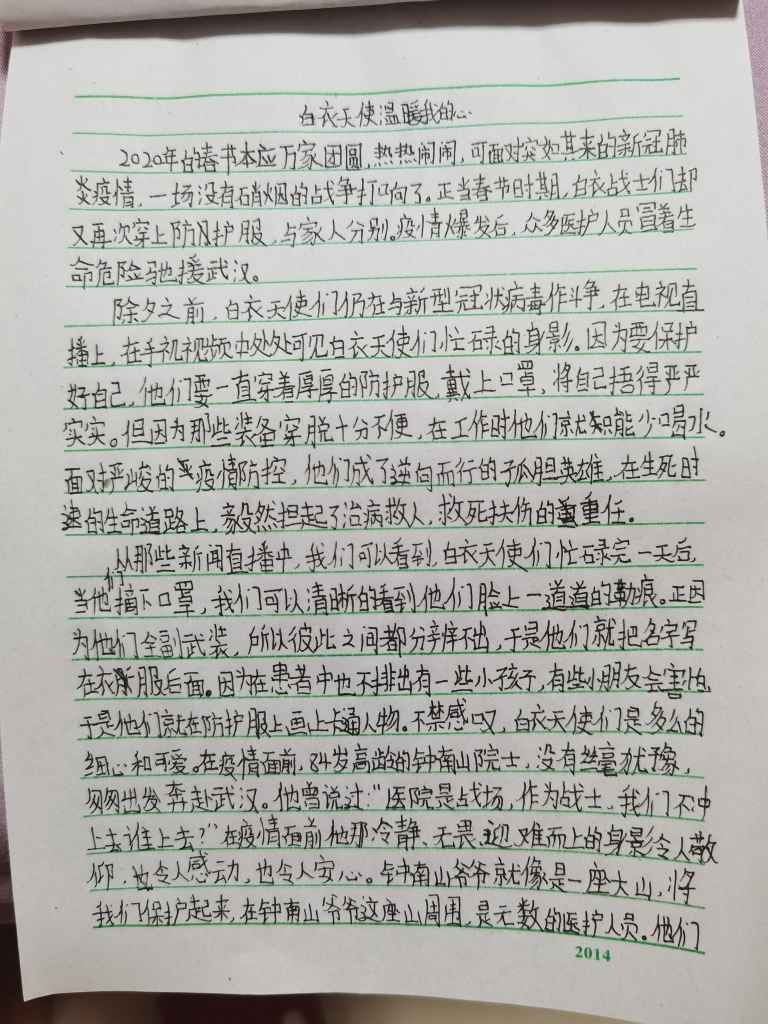 白衣天使温暖我的心
2020年的春书本应万家团圆,热热闹闹,可面对突如其来的新冠肺
炎疫情,一场没有硝烟的战争打响了。正当春节时期,白衣战士们却
又再次穿上防护服,与家人分别。疫情爆发后,众多医护人员冒着生
命危险驰援武汉。
除夕之前,白衣天使们仍在与新型冠状病毒作斗争,在电视直
播上,在手机视频中处处可见白衣天使们忙碌的身影。因为要保护
好自己,他们要一直穿着厚厚的防护服,戴上口罩,将自己捂得严严
实实。但因为那些装备穿脱十分不便,在工作时他们就只能少喝水。
面对严峻的疫情防控,他们成了逆向而行的孤胆英雄,在生死时
速的生命道路上,毅然担起了治病救人,救死扶伤的重任。
从那些新闻直播中,我们可以看到,白衣天使们忙碌完一天后,
当他们摘下口罩,我们可以清晰的看到他们脸上一道道的勒痕。正因
为他们全副武装,所以彼此之间都分辨不出,于是他们就把名字写
在衣服后面。因为在患者中也不排出有一些小孩子,有些小朋友会害怕
于是他们就在防护服上画上卡通人物。不禁感叹,白衣天使们是多么的
细心和可爱。在疫情面前,84岁高龄的钟南山院士,没有丝毫犹豫,
匆匆出发奔赴武汉。他曾说过:“医院是战场,作为战士,我们不冲
上去谁上去?”在疫情面前他那冷静、无畏、迎难而上的身影令人敬
仰,也令人感动,也令人安心。钟南山爷爷就像是一座大山,将
我们保护起来,在钟南山爷爷这座山周围,是无数的医护人员。他们
2014